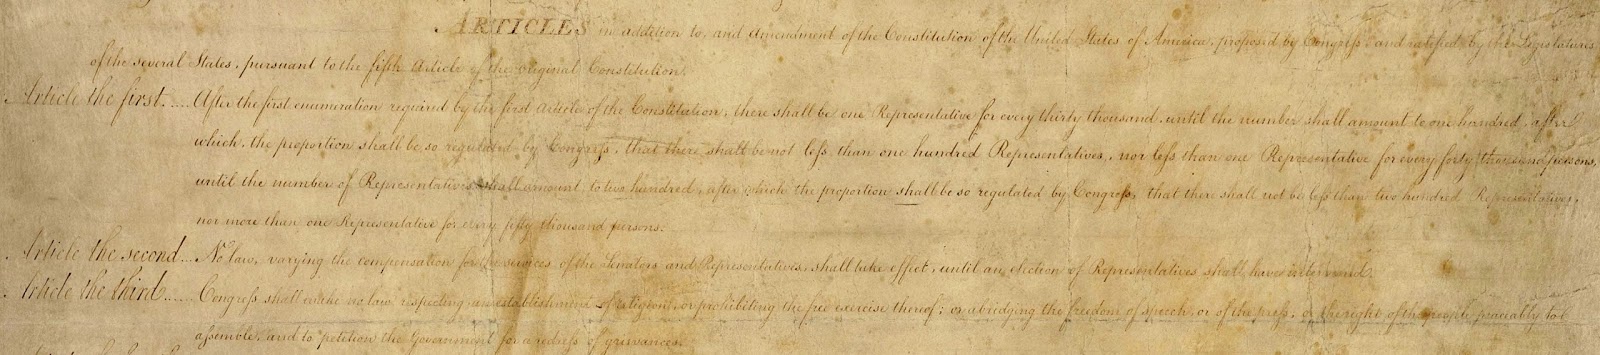 ARTICLES in addition to, and Amendment of the Constitution of the United States of America, proposed by Congress, and ratified by the Legislatures
of the several States, pursuant to the fifth Article of the original Constitution.
Article the first..... After the first enumeration required by the first Article of the Constitution, there shall be one Representative for every thirty thousand, until the number shall amount to one hundred, after
which, the proportion shall be so regulated by Congress, that there shall be not less than one hundred Representatives, nor less than one Representative for every forty thousand persons,
until the number of Representatives shall amount to two hundred, after which the proportion shall be so regulated by Congress, that there shall not be less than two hundred Representatives,
nor more than one Representative for every fifty thousand persons.
Article the second... No law, varying the compensation for the services of the Senators and Representatives, shall take effect, until an election of Representatives shall have intervened.
Article the third...... Congress shall make no law respecting an establishment of religion, or prohibiting the free exercise thereof; or abridging the freedom of speech, or of the press; or the right of the people peaceably to
assemble, and to petition the Government for a redress of grievances.